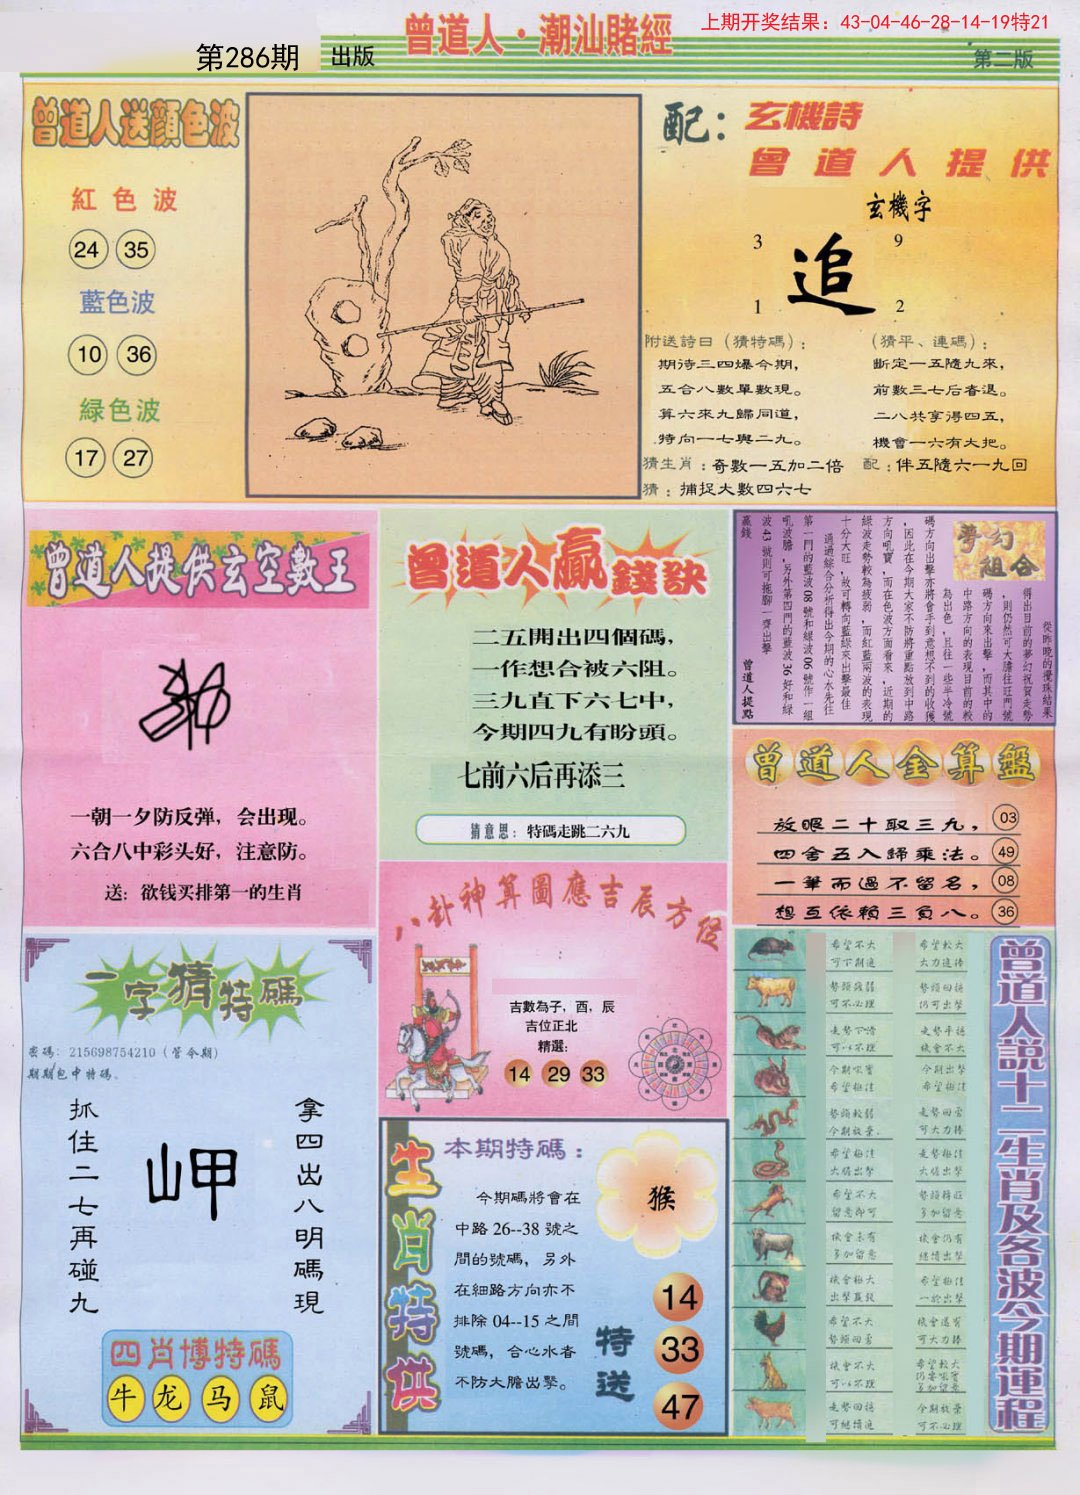 上期开奖结果：43-04-46-28-14-19特21
曾道人·潮汕賭經
第286期 出版
第二版
曾道人送顏色波
紅色波
24 35
藍色波
10 36
緑色波
17 27
配：玄機詩
曾道人提供
玄機字
3 9
追
1 2
附送詩曰（猜特碼）：
期待三四爆今期，
五合八數單數現。
算六來九歸同道，
特向一七與二九。
猜生肖：奇數一五加二倍
猜：捕捉大數四六七
（猜平、連碼）：
斷定一五隨九來，
前數三七后者退。
二八共享得四五，
機會一六有大把。
配：伴五隨六一九回
曾道人提供玄空數王
一朝一夕防反弹，会出现。
六合八中彩头好，注意防。
送：欲钱买排第一的生肖
曾道人贏錢訣
二五開出四個碼，
一作想合被六阻。
三九直下六七中，
今期四九有盼頭。
七前六后再添三
猜意思：特碼走跳二六九
夢幻組合
從昨晚的攪珠結果
得出目前的夢幻祝賀走勢
，則仍然可大膽往旺門號
碼方向來出擊，而其中的
中路方向的表現目前的較
為出色，且往一些半冷號
碼方向出擊亦將會手到意想不到的收獲
，因此在今期大家不防將重點放到中路
方向吼寶，而在色波方面看來，近期的
綠波走勢較為疲弱，而紅藍兩波的表現
十分大旺，故可轉向藍綠來出擊最佳
通過綜合分析得出今期的心水先往
第一門的藍波08號和綠波06號作一組
吼波膽，另外第四門的藍波36好和綠
波43號則可拖腳一齊出擊
贏錢
曾道人提點
曾道人全算盤
放眼二十取三九，03
四舍五入歸乘法。49
一筆而過不留名，08
想互依賴三負八。36
八卦神算圖應吉辰方位
吉數為子，酉，辰
吉位正北
精選：
14 29 33
一字猜特碼
密碼：215698754210（管令期）
期期包中特碼、
抓住二七再碰九
岬
拿四出八明碼現
四肖博特碼
牛 龙 马 鼠
生肖特供
本期特碼：
今期碼將會在
中路26--38號之
間的號碼，另外
在細路方向亦不
排除04--15之間
號碼，合心水者
不防大膽出擊。
猴
特送
14
33
47
曾道人說十二生肖及各波今期運程
希望不大 希望較大
可下期追 大力追捧
勢頭疲弱 勢頭回穩
可不必理 仍可出擊
走勢下滑 走勢平穩
可以不理 機會不大
今期吼實 今期出擊
希望極佳 希望極佳
勢頭較弱 走勢回雲
今期放棄、 可大力捧
希望極佳 走勢極佳
大膽出擊 大膽出擊
希望不大
留意即可 多加留意
機會未有 機會仍有
多加留意 繼續出擊
機會極大 希望極佳
希望不大 機會還有
可大力捧
機會不大 希望較大
可以不理 多加留意
走勢回穩 今期放棄
可繼續追 可不必理